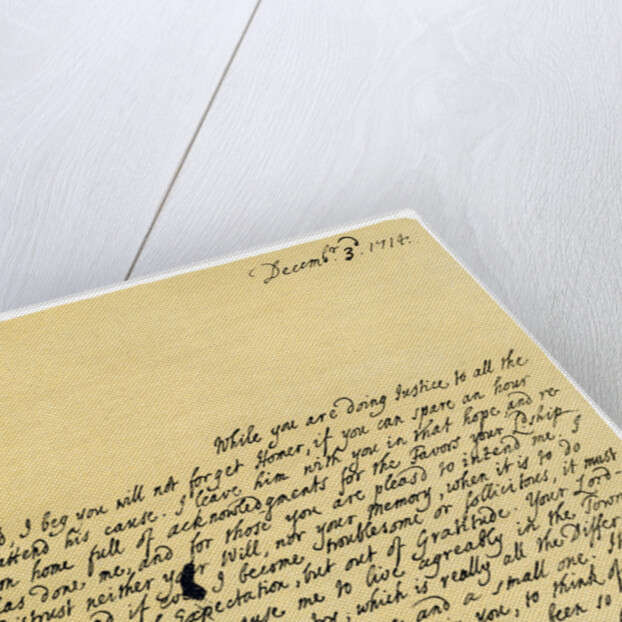 Decembr. 3d. 1714.
While you are doing Justice to all the
I beg you will not forget Homer, if you can spare an hour
attend his cause. I leave him with you in that hope, and re
home full of acknowledgments for the Favors your Ldship
has done me, and for those you are pleasd to intend me. I
distrust neither your Will, nor your memory, when it is to do
and if ever I become troublesome or sollicitous, it must
Expectation, but out of Gratitude. Your Lord-
cause me to live agreably in the Town
which is really all the Differ
and a small one. It
you, to think of
been so